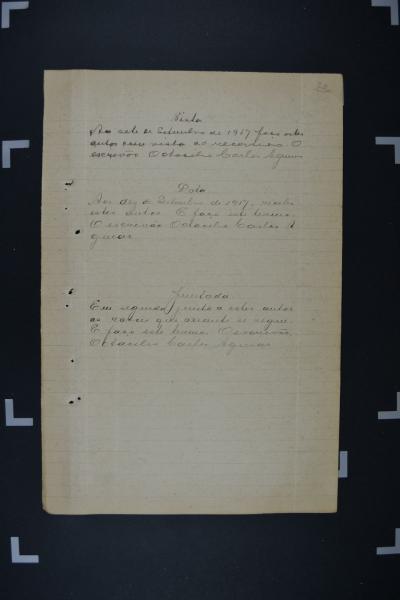 Vista
Aos sete de Setembro de 1917 faço estes
autos com vista ao recorrido. O
escrivão Octacilio Carlos Aguiar
Data
Aos dez de Setembro de 1917, recebi
estes autos. E faço este termo.
O escrivão Octacilio Carlos A
guiar
Juntada
Em seguida, junto a estes autos
as razões que adiante se segue.
E faço este termo. O escrivão,
Octacilio Carlos Aguiar